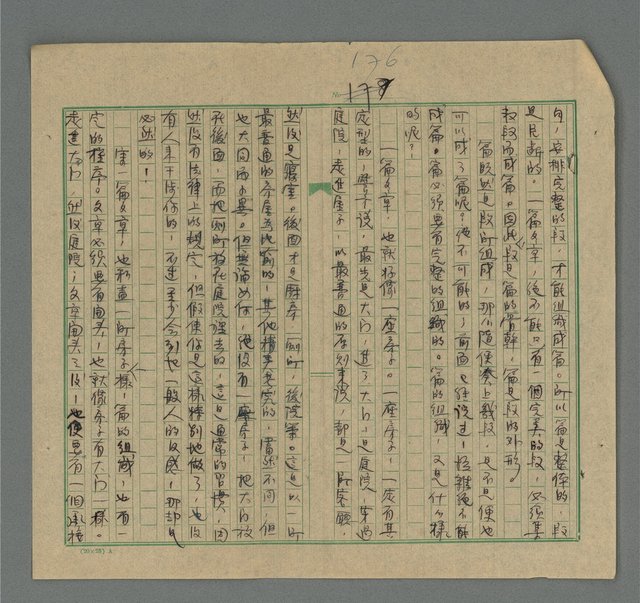 176
句，安排完整的段，才能組織成篇。所以篇是整體的，段
是片斷的。一篇文章，絕不能只有一個完美的段，必須集
數段而成篇。因此段是篇的骨幹，篇是段的外形。
篇既然是段所組成，那么隨便湊上幾段，是不是便也
可以成了篇呢？絕不可能的，前面已經說過，怪雜絕不能
成篇。篇必須要有完整的組織的。篇的組織，又是什么樣
的呢？
一篇文章，也就好像一座房子。一座房子，一定有其
定型的，譬如說，最先是大门，進了大门，是庭院，穿過
庭院，走進屋子，以最普通的序列來說，都是一所客廳，
然後是寢室。後面才是厨房，厠所，後院等。這是以一所
最普通的房屋為比喻的，其他精步更宏的，當然不同，但
也大同而小異。但無論如何，絕没有一座房子，把大门放
在後面，而把厠所放在庭院裡去的，這是通常的習慣，固
然没有法律上的規定，但假使你是這樣特别地做了，也没
有人來干涉你的，不過至少会引起一般人的反感，那却是
必然的！
寫一篇文章，也和盖一所房子一樣，篇的組織，也有一
定的程序。文章必須要有開頭，也就像房子有大门一樣。
走進大门，然後庭院，文章開头之後，也便要有一個承接
(20×25) A